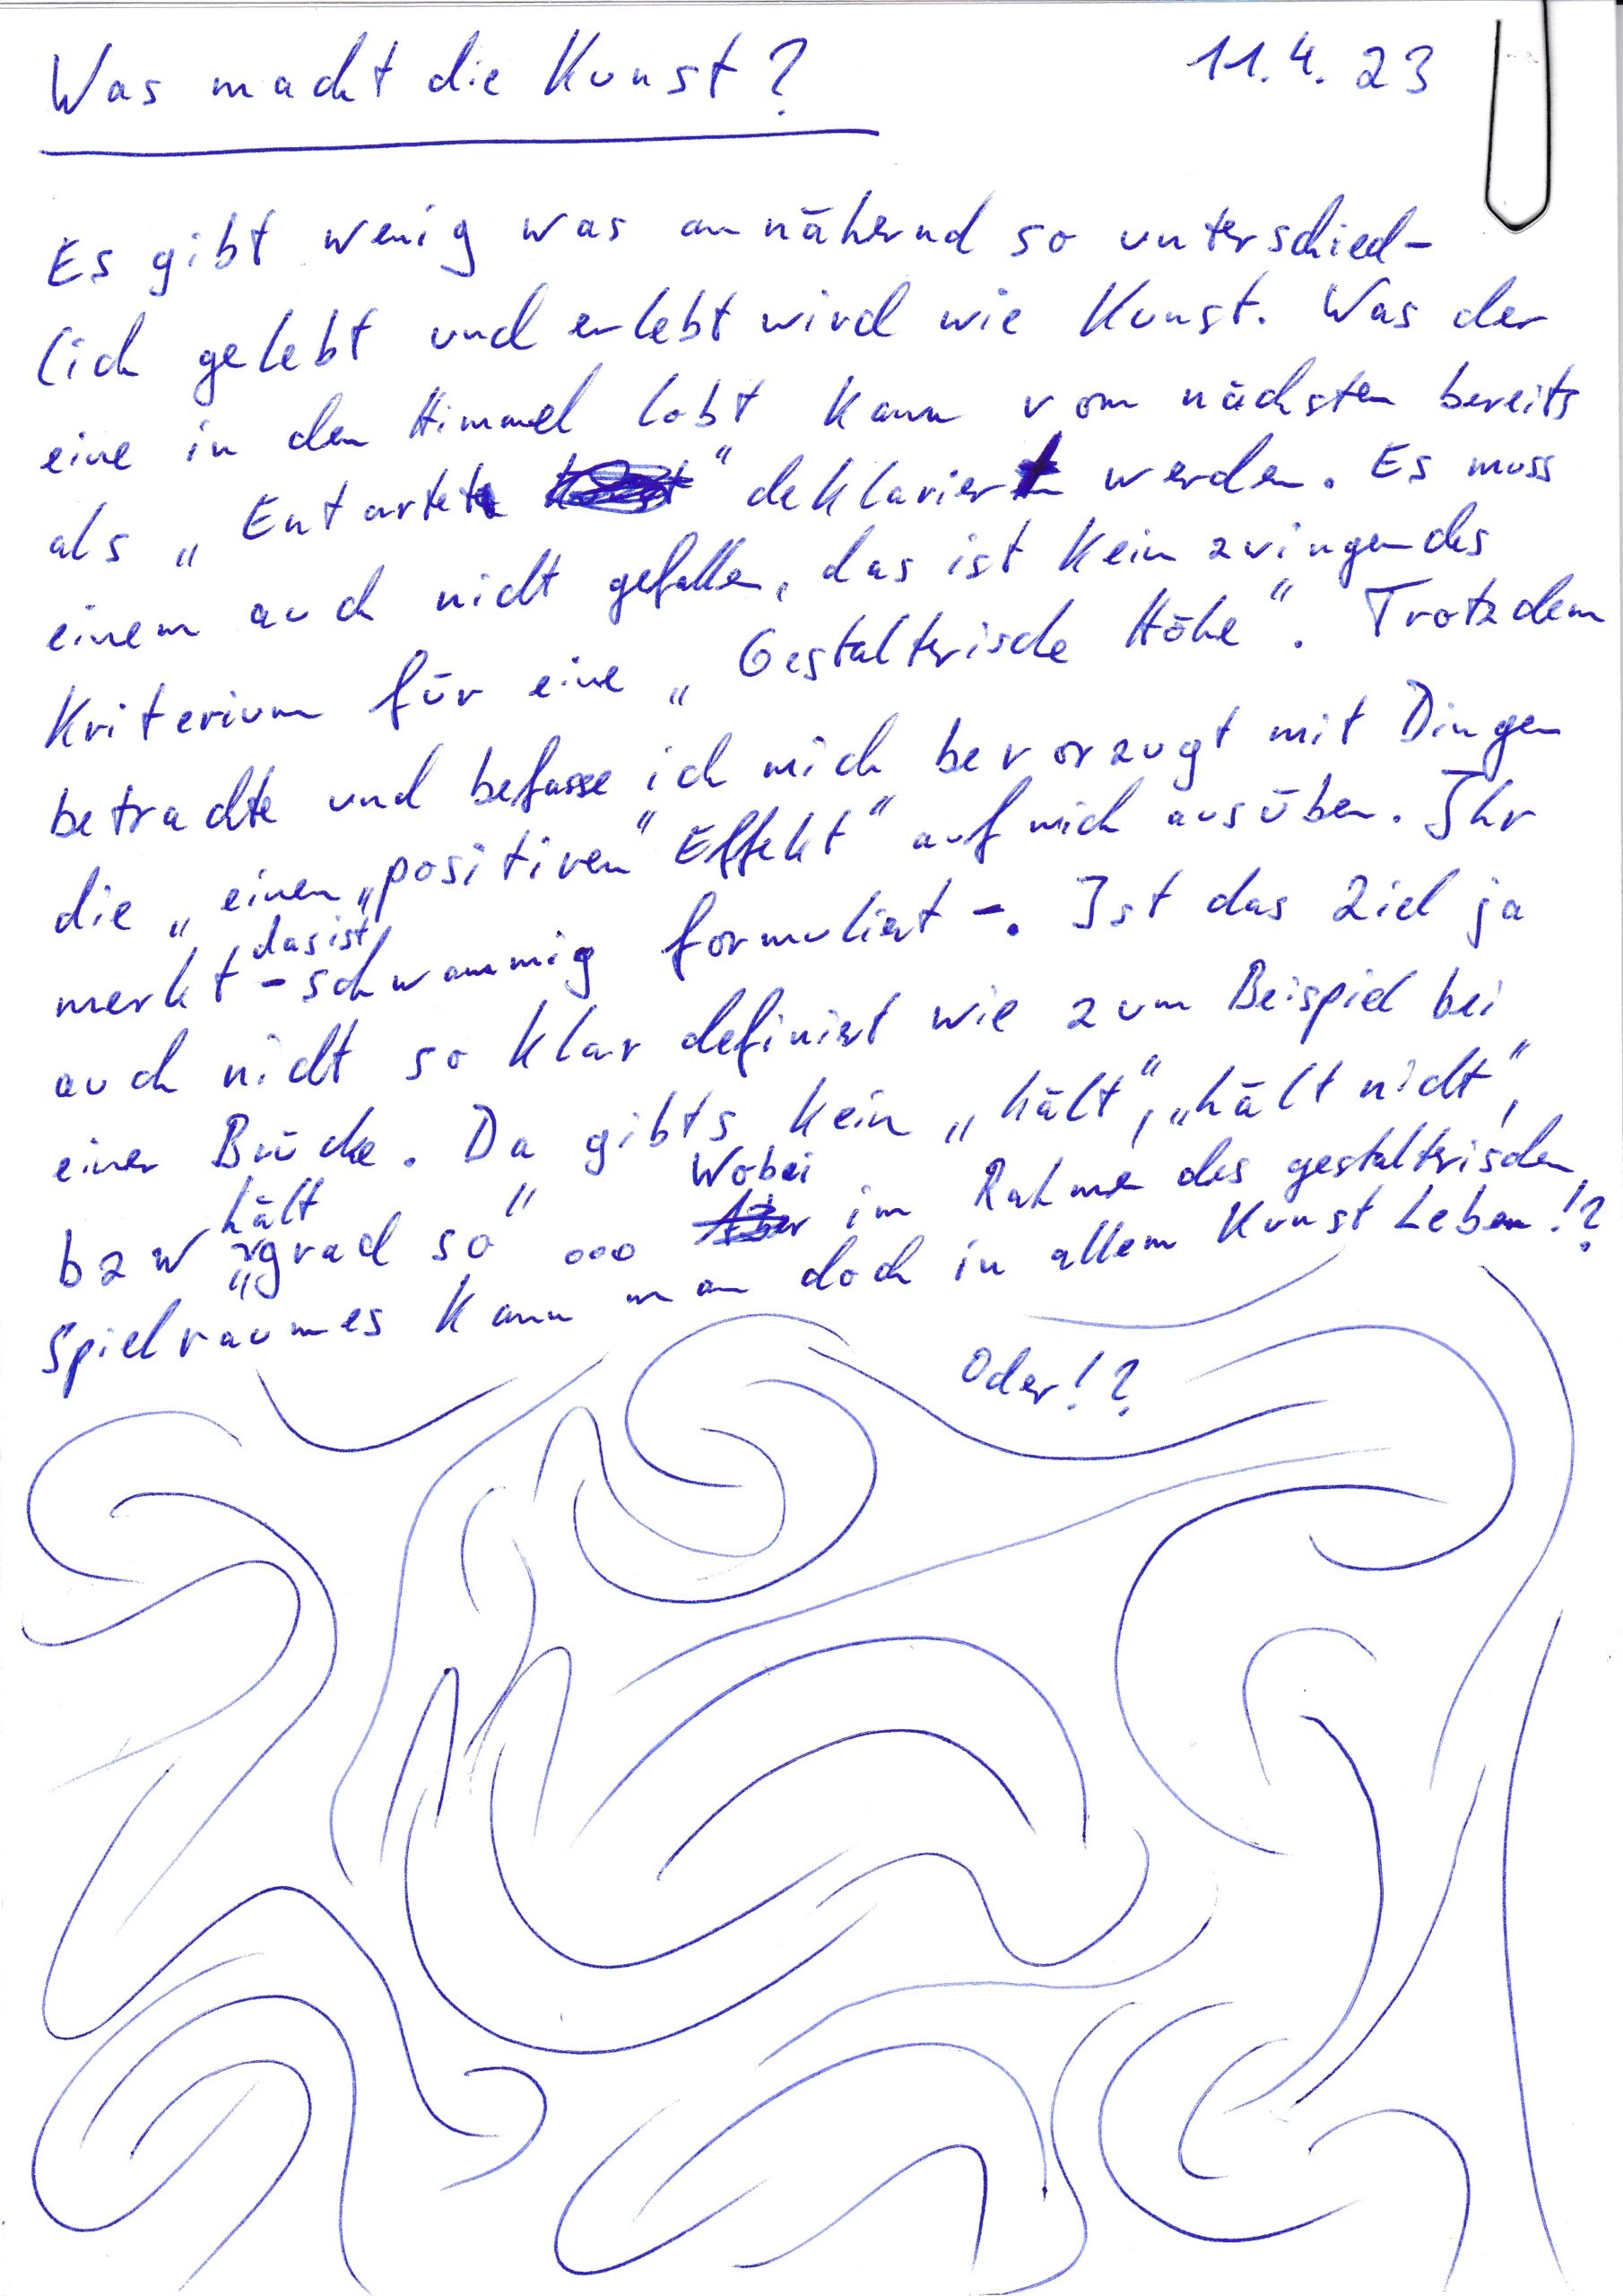 Was macht die Kunst?
11.4.23
Es gibt wenig was annähernd so unterschied-
lich gelebt und erlebt wird wie Kunst. Was der
eine in den Himmel lobt kann vom nächsten bereits
als „Entartet“ deklariert werden. Es muss
einem auch nicht gefallen, das ist kein zwingendes
Kriterium für eine „Gestalterische Höhe“. Trotzdem
betrachte und befasse ich mich bevorzugt mit Dingen
die „einen „positiven“ Effekt“ auf mich ausüben. Ihr
merkt - das ist schwammig formuliert -. Ist das Ziel ja
auch nicht so klar definiert wie zum Beispiel bei
einer Brücke. Da gibts kein „hält“, „hält nicht“,
bzw „hält grad so“ ... Wobei im Rahmen des gestalterischen
Spielraumes kann man doch in allem Kunst Leben!?
Oder!?